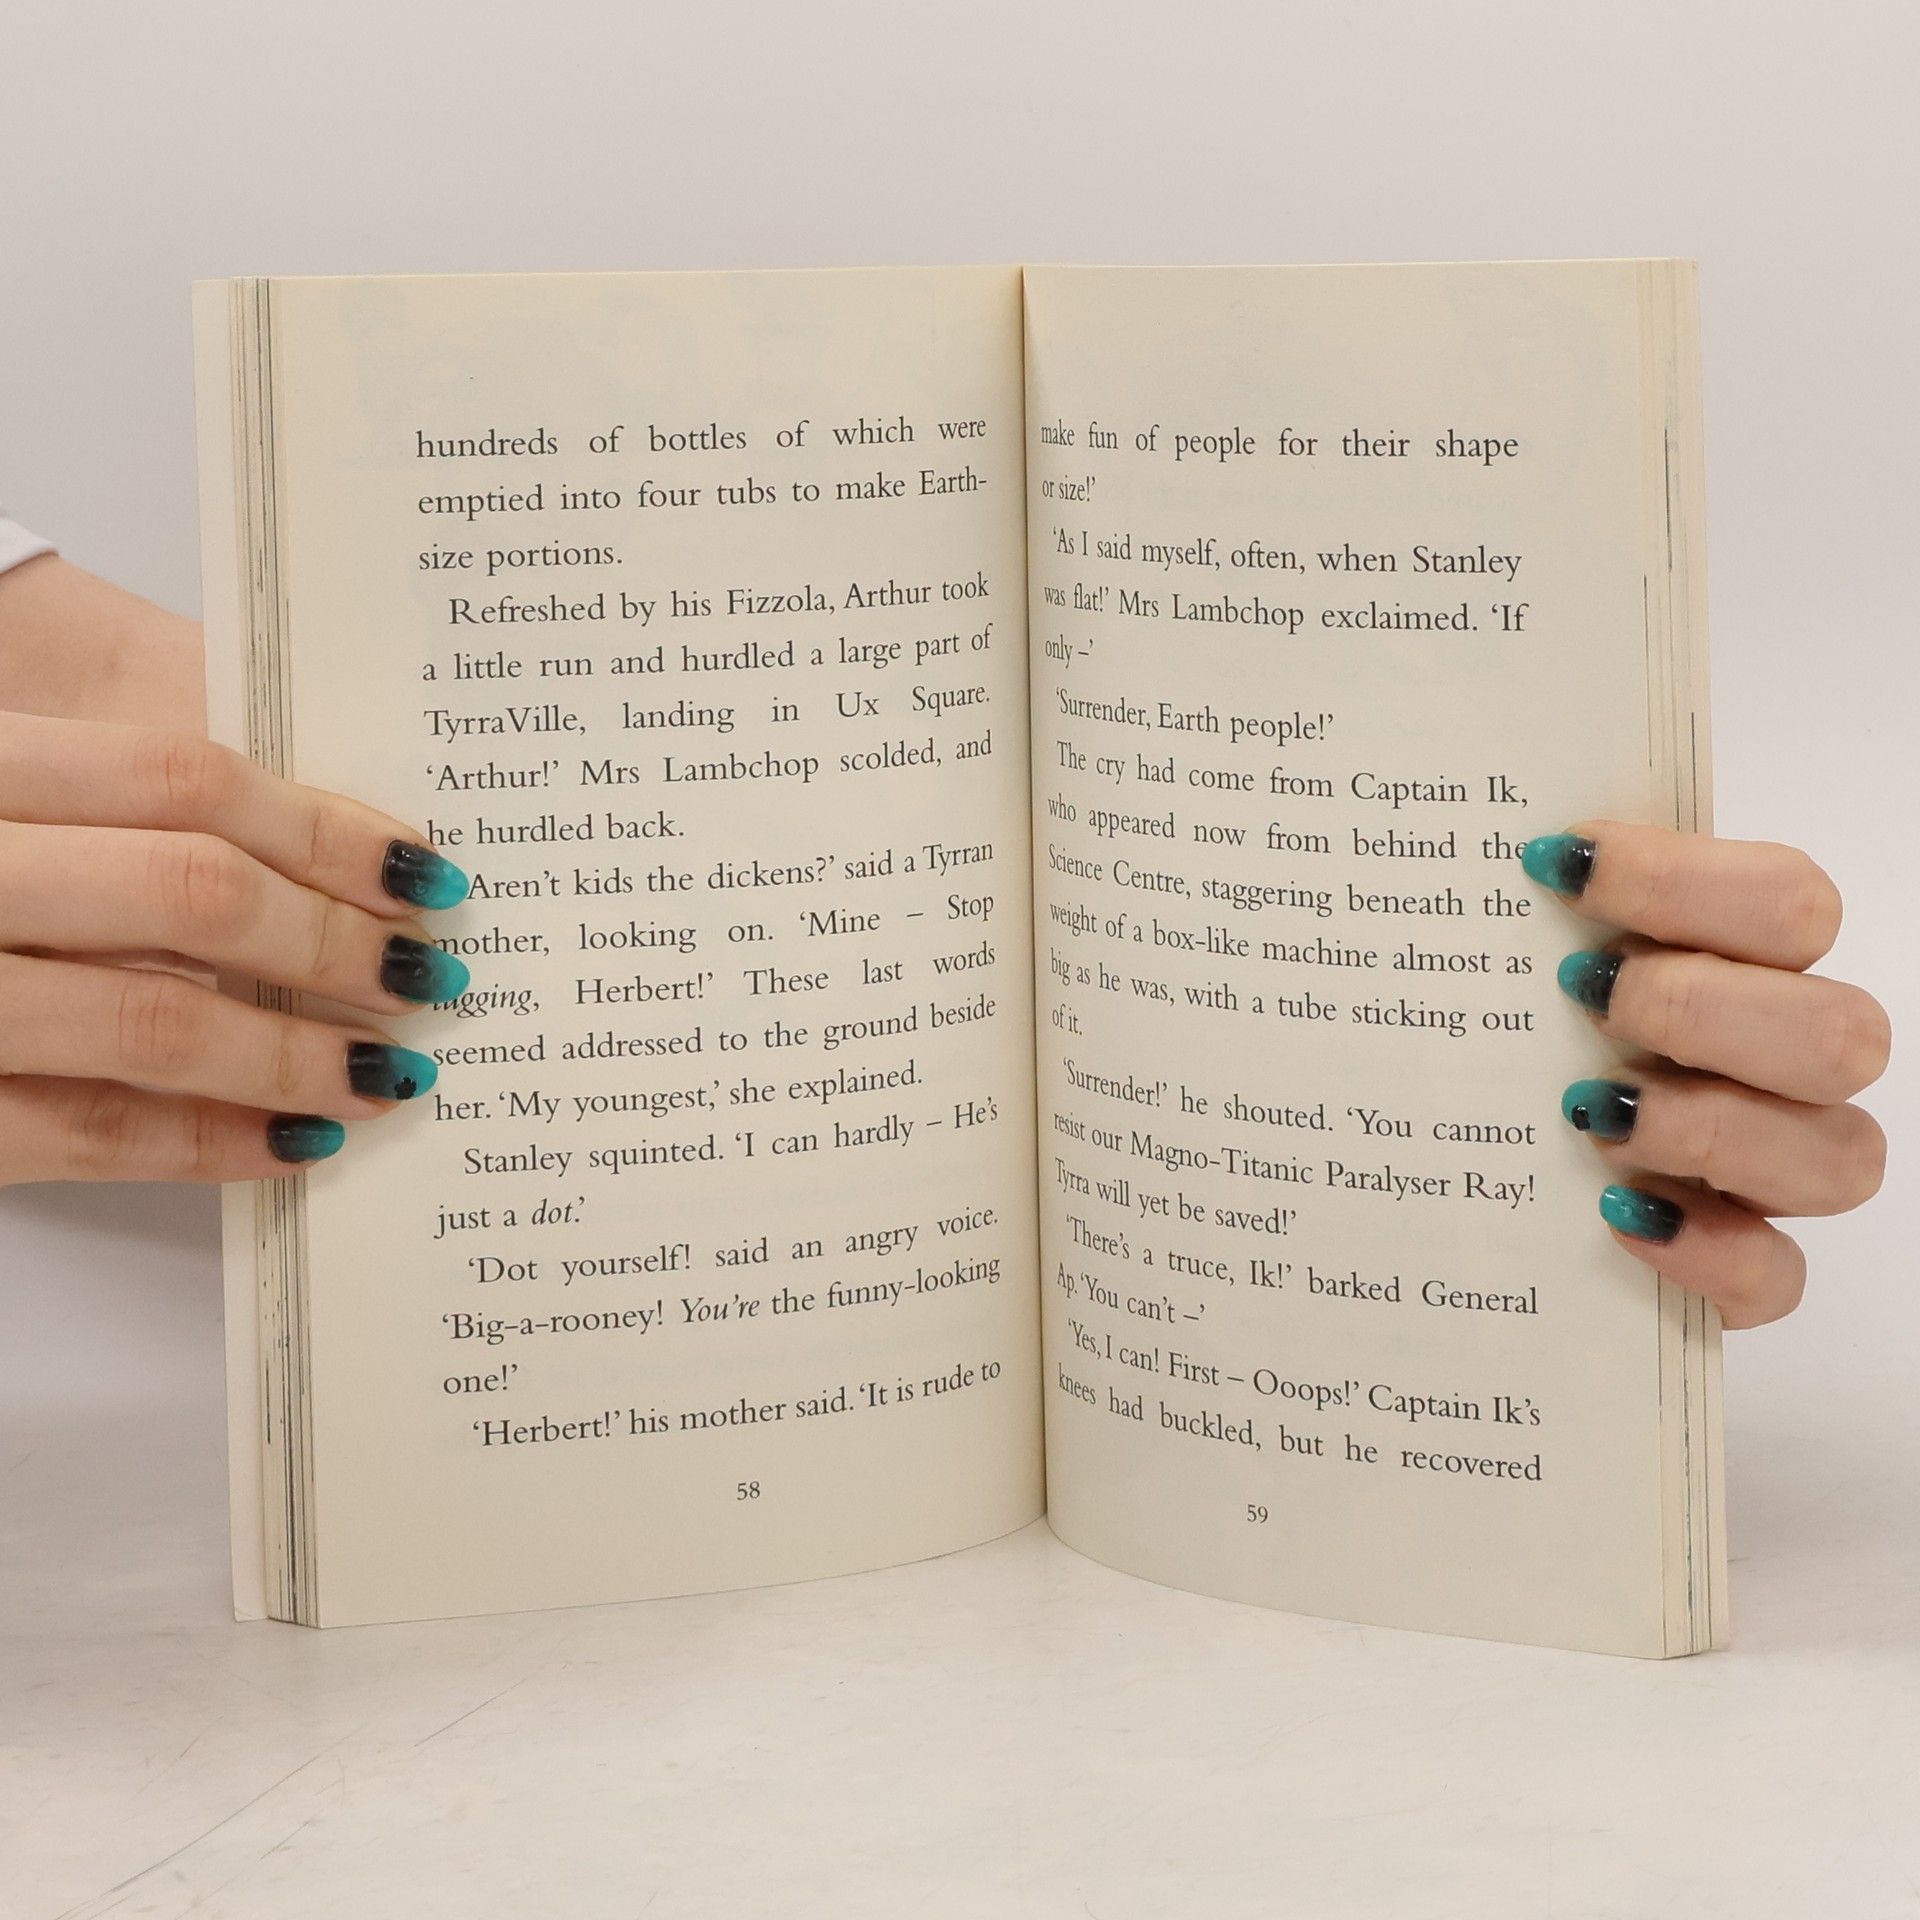 hundreds of bottles of which were
emptied into four tubs to make Earth-
size portions.
Refreshed by his Fizzola, Arthur took
a little run and hurdled a large part of
TyrraVille, landing in Ux Square.
‘Arthur!’ Mrs Lambchop scolded, and
he hurdled back.
Aren’t kids the dickens?’ said a Tyrran
mother, looking on. ‘Mine – Stop
Herbert!’ These last words
seemed addressed to the ground beside
her. ‘My youngest,’ she explained.
Stanley squinted. ‘I can hardly – He’s
just a dot.’
‘Dot yourself! said an angry voice.
‘Big-a-rooney! You’re the funny-looking
one!’
‘Herbert!’ his mother said. ‘It is rude to
58
make fun of people for their shape
or size!’
‘As I said myself, often, when Stanley
was flat!’ Mrs Lambchop exclaimed. ‘If
only –’
‘Surrender, Earth people!’
The cry had come from Captain Ik,
who appeared now from behind the
Science Centre, staggering beneath the
weight of a box-like machine almost as
big as he was, with a tube sticking out
of it.
‘Surrender!’ he shouted. ‘You cannot
resist our Magno-Titanic Paralyser Ray!
Tyrra will yet be saved!’
‘There’s a truce, Ik!’ barked General
Ap. ‘You can’t –’
‘Yes, I can! First – Ooops!’ Captain Ik’s
knees had buckled, but he recovered
59